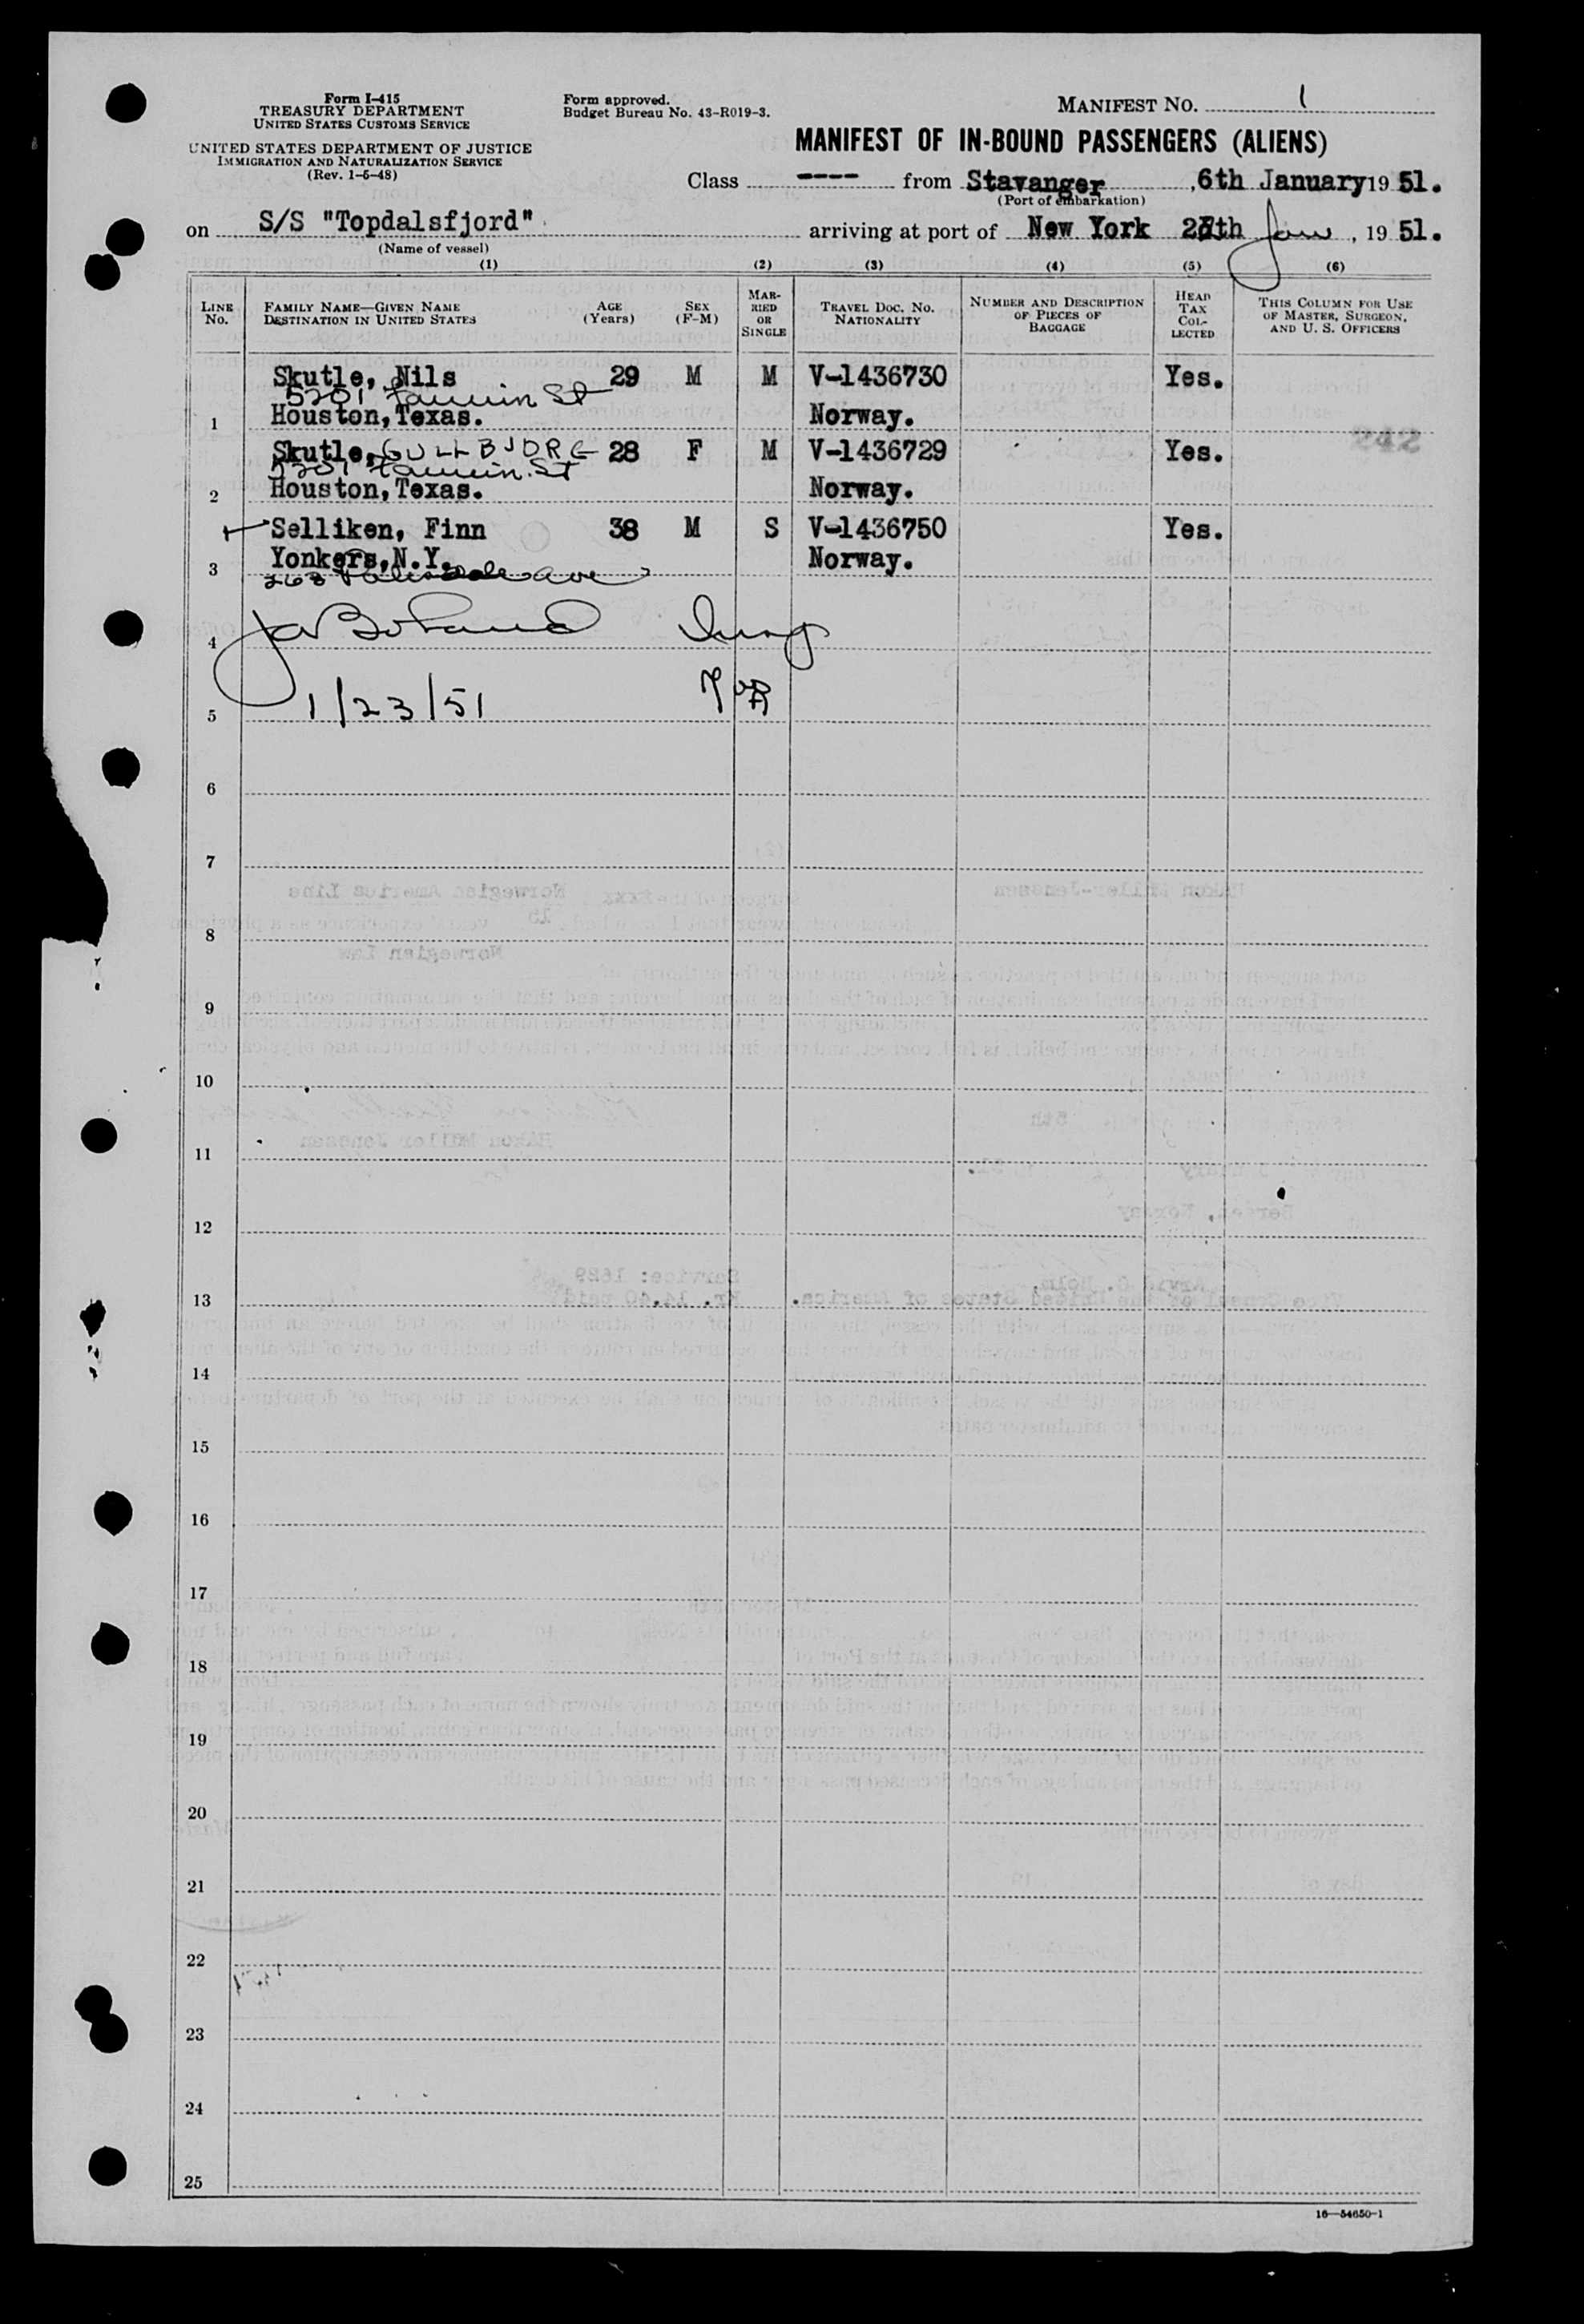 Form I-415
TREASURY DEPARTMENT
UNITED STATES CUSTOMS SERVICE
UNITED STATES DEPARTMENT OF JUSTICE
IMMIGRATION AND NATURALIZATION SERVICE
(Rev. 1-5-48)
Form approved.
Budget Bureau No. 43-R019-3.
MANIFEST No. 1
MANIFEST OF IN-BOUND PASSENGERS (ALIENS)
Class ---- from Stavanger, 6th January 19 51.
(Port of embarkation)
on S/S "Topdalsfjord" arriving at port of New York Jan, 19 51.
(Name of vessel)
(1) (2) (3) (4) (5) (6)
LINE No. FAMILY NAME—GIVEN NAME DESTINATION IN UNITED STATES AGE (Years) SEX (F-M) MARRIED OR SINGLE TRAVEL DOC. No. NATIONALITY NUMBER AND DESCRIPTION OF PIECES OF BAGGAGE HEAD TAX COLLECTED THIS COLUMN FOR USE OF MASTER, SURGEON, AND U. S. OFFICERS
Skutle, Nils 29 M M V-1436730 Yes.
5201 St
1 Houston, Texas. Norway.
Skutle, GULLBJORG 28 F M V-1436729 Yes. 242
5201 St
2 Houston, Texas. Norway.
Selliken, Finn 38 M S V-1436750 Yes.
Yonkers, N.Y. Norway.
3 Ave
4
5 1/23/51
6
7
8
9
10
11
12
13
14
15
16
17
18
19
20
21
22
23
24
25
16—54650-1